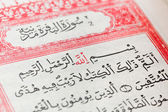 سُورَةُ الْبَقَرَةِ
بِسْمِ اللهِ الرَّحْمٰنِ الرَّحِيمِ
الٓمٓ ذٰلِكَ الْكِتٰبُ لَا رَيْبَ فِيهِ هُدًى
الَّذِينَ يُؤْمِنُونَ